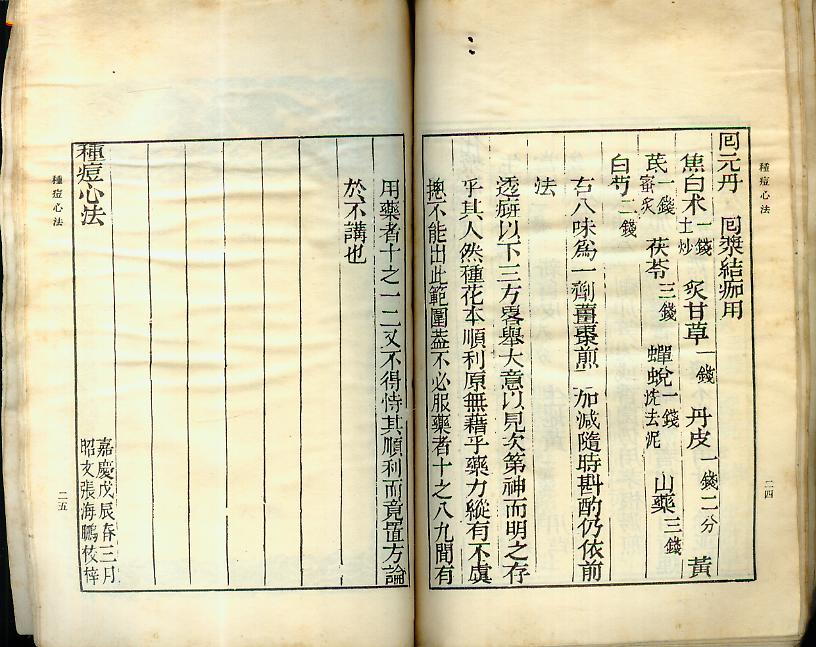 種痘心法
二四
囘元丹　囘漿結痂用
焦白术一錢土炒　炙甘草一錢　丹皮一錢二分　黃
芪一錢蜜炙　茯苓三錢　蟬蛻一錢洗去泥　山藥三錢
白芍二錢
右八味爲一劑薑棗煎　加減隨時斟酌仍依前
法
透以下三方畧舉大意以見次第神而明之存
乎其人然種花本順利原無藉乎藥力縱有不虞
摠不能出此範圍葢不必服藥者十之八九間有
用藥者十之一二又不得恃其順利而竟置方論
於不講也
種痘心法
嘉慶戊辰春三月
昭文張海鵬校梓
種痘心法
二五